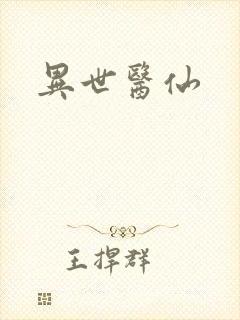 異世醫仙
王捍群